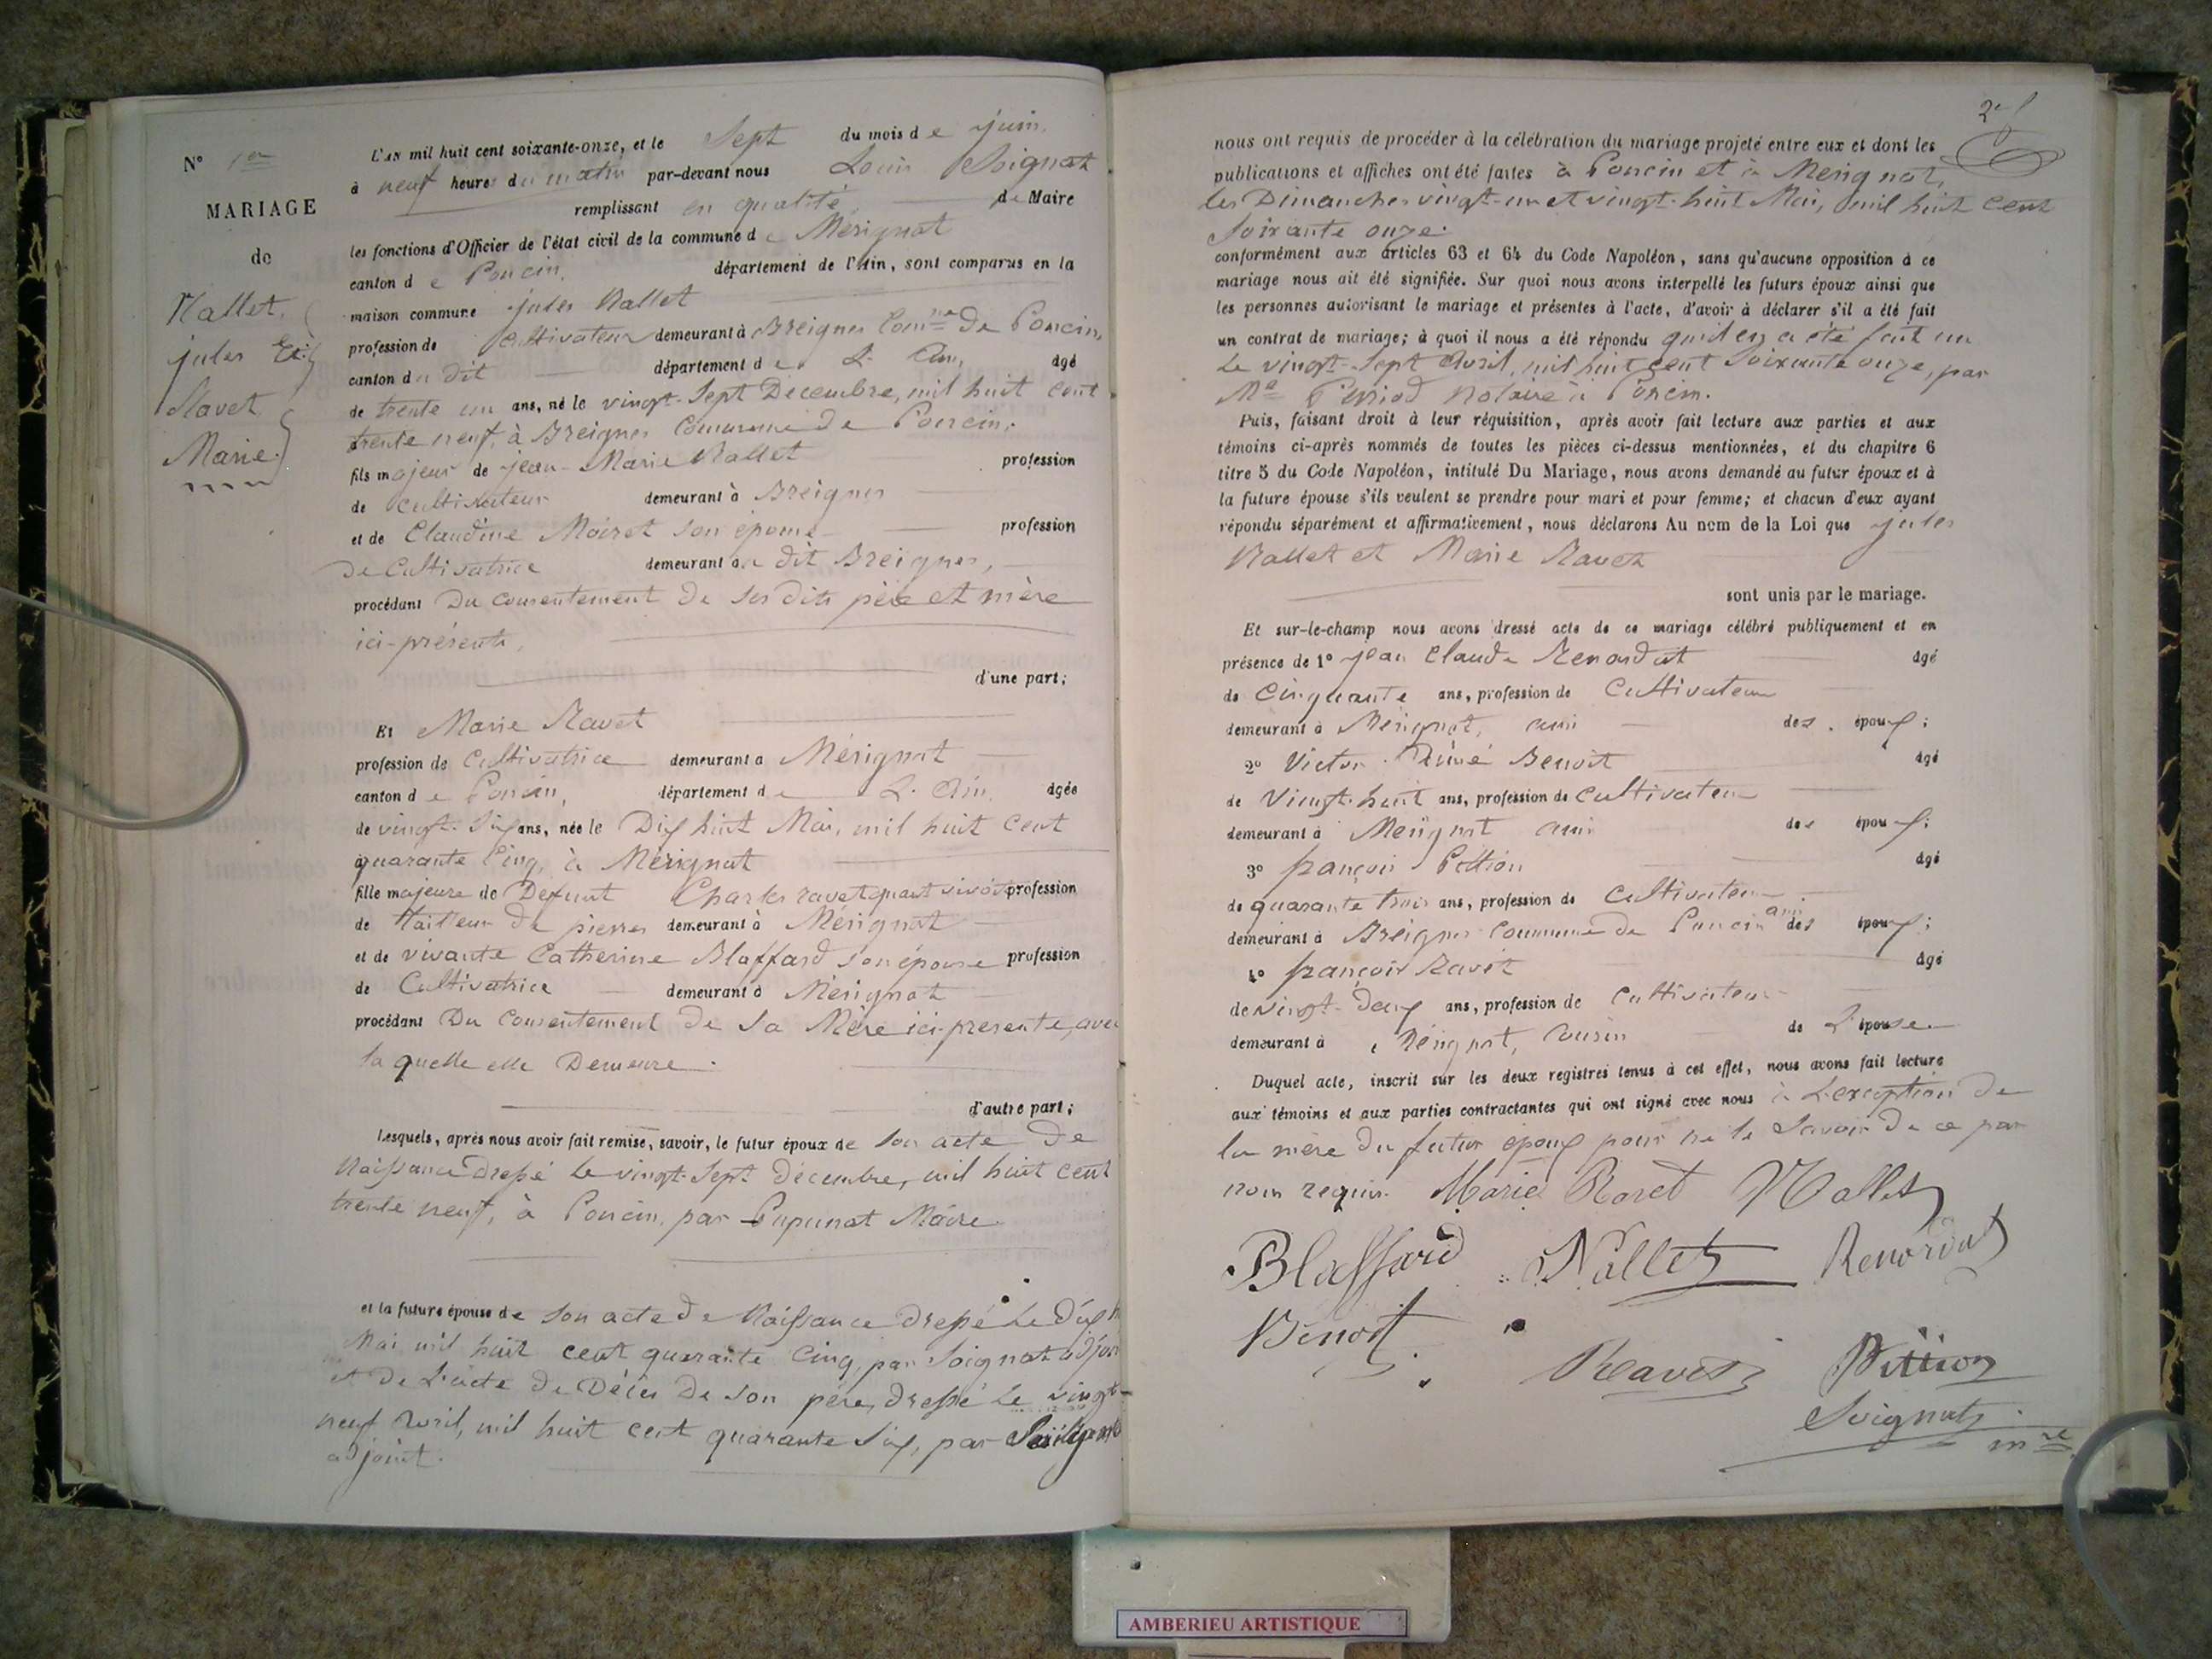 N° 1er
MARIAGE
de
Nallet,
jules Et
Ravet
Marie
L'AN mil huit cent soixante-onze, et le Sept du mois de juin,
à neuf heures du matin par-devant nous Louis Soignat
remplissant en qualité de Maire
les fonctions d'Officier de l'état civil de la commune de Mérignat
canton de Poncin, département de l'Ain, sont comparus en la
maison commune jules Nallet
profession de Cultivateur demeurant à Breignes Comne De Poncin,
canton du dit département de L'Ain, âgé
de trente un ans, né le vingt-Sept Decembre, mil huit cent
trente neuf, à Breignes Commune de Poncin,
fils majeur de jean-Marie Nallet profession
de cultivateur demeurant à Breignes
et de Claudine Moiret son épouse profession
De Cultivatrice demeurant au dit Breignes,
procédant Du consentement De ses dits père et mère
ici-présents,
d'une part;
Et Marie Ravet
profession de Cultivatrice demeurant à Mérignat
canton de Poncin, département de L'Ain, âgée
de vingt-Six ans, née le Dix huit Mai, mil huit cent
quarante Cinq, à Mérignat
fille majeure de Defunt Charles ravet quant vivait profession
de tailleur De pierres demeurant à Mérignat
et de vivante Catherine Blaffard son épouse profession
de Cultivatrice demeurant à Mérignat
procédant Du Consentement De Sa Mère ici-presente, avec
laquelle elle Demeure.
d'autre part;
Lesquels, après nous avoir fait remise, savoir, le futur époux de Son acte De
Naissance Dressé Le vingt-Sept décembre, mil huit cent
trente neuf, à Poncin, par Pupunat Maire
et la future épouse de Son acte De Naissance Dressé Le Dix h
Mai mil huit cent quarante Cinq, par Soignat adjoi
et De L'acte De Décès De Son père, Dressé Le vingt-
neuf Avril, mil huit cent quarante Six, par Soignat
adjoint.
2e f
nous ont requis de procéder à la célébration du mariage projeté entre eux et dont les
publications et affiches ont été faites à Poncin et à Merignat,
les Dimanches vingt-un et vingt-huit Mai, mil huit Cent
Soixante onze.
conformément aux articles 63 et 64 du Code Napoléon, sans qu'aucune opposition à ce
mariage nous ait été signifiée. Sur quoi nous avons interpellé les futurs époux ainsi que
les personnes autorisant le mariage et présentes à l'acte, d'avoir à déclarer s'il a été fait
un contrat de mariage; à quoi il nous a été répondu qu'il en a été fait un
Le vingt-Sept Avril, mil huit cent Soixante onze, par
Me Notaire à Poncin.
Puis, faisant droit à leur réquisition, après avoir fait lecture aux parties et aux
témoins ci-après nommés de toutes les pièces ci-dessus mentionnées, et du chapitre 6
titre 5 du Code Napoléon, intitulé Du Mariage, nous avons demandé au futur époux et à
la future épouse s'ils veulent se prendre pour mari et pour femme; et chacun d'eux ayant
répondu séparément et affirmativement, nous déclarons Au nom de la Loi que jules
Nallet et Marie Ravet
sont unis par le mariage.
Et sur-le-champ nous avons dressé acte de ce mariage célébré publiquement et en
présence de 1° jean Claude Renardat âgé
de Cinquante ans, profession de Cultivateur
demeurant à Mérignat, ami des époux;
2° Victor Aimé Benoit âgé
de Vingt-huit ans, profession de Cultivateur
demeurant à Merignat ami des époux;
3° françois Pittion âgé
de quarante trois ans, profession de Cultivateur
demeurant à Breignes Commune De Poncin ami des époux;
4° françois Ravet âgé
de Vingt-Deux ans, profession de Cultivateur
demeurant à Mérignat, Cousin de L'épouse
Duquel acte, inscrit sur les deux registres tenus à cet effet, nous avons fait lecture
aux témoins et aux parties contractantes qui ont signé avec nous à L'exception De
la mère Du futur époux pour ne le Savoir De ce par
nous requis. Marie Ravet Nallet
Blaffard Nallet Renardat
Benoit
Ravet Pittion
Soignat
mre
AMBERIEU ARTISTIQUE